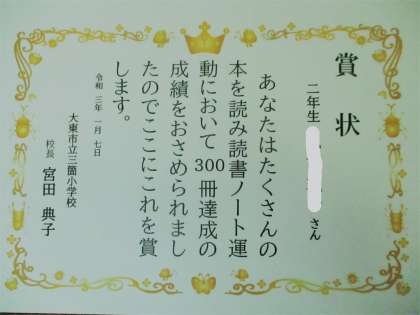 賞状
二年生 さん
あなたはたくさんの
本を読み読書ノート運
動において300冊達成の
成績をおさめられまし
たのでここにこれを賞
します。
令和三年一月七日
大東市立三箇小学校
校長 宮田典子